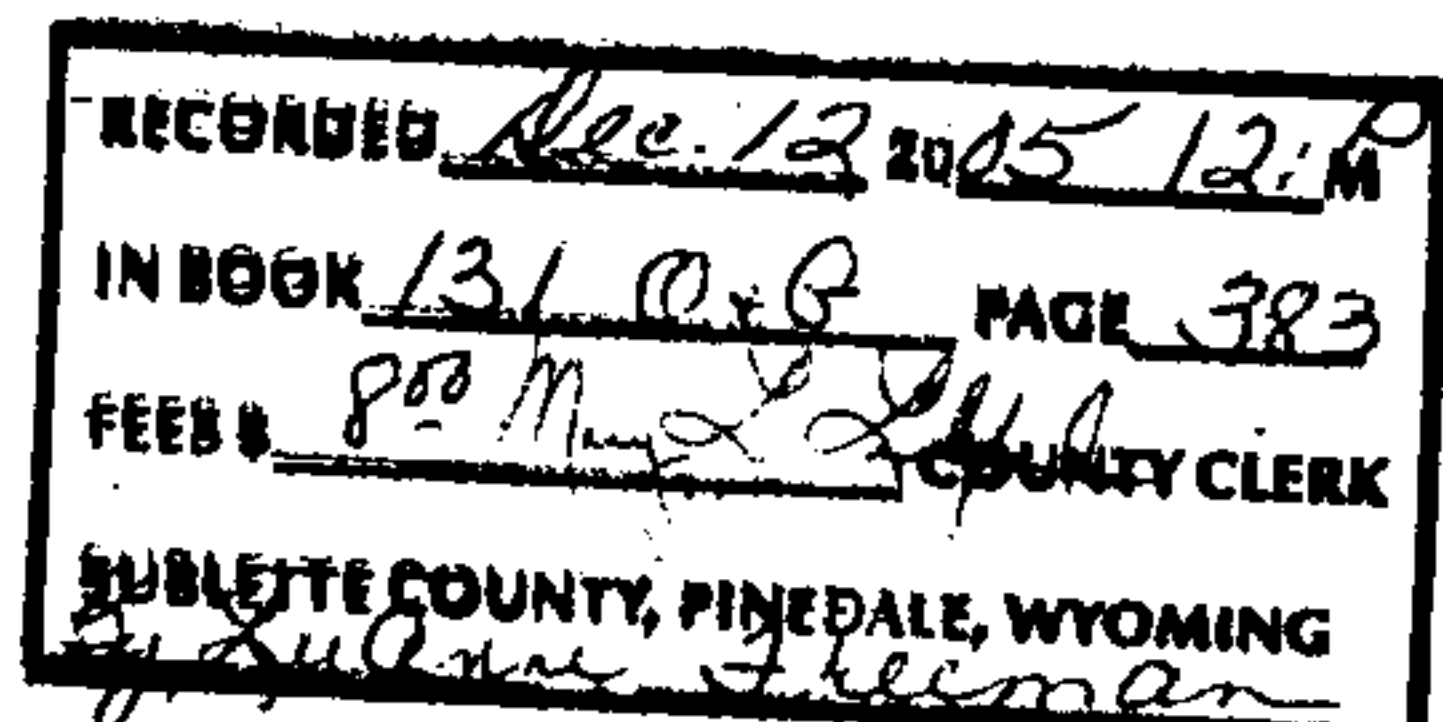 RECORDED Dec. 12 2005 12: P M
IN BOOK 131 O & G PAGE 383
FEES $ 8 00 Mary L COUNTY CLERK
SUBLETTE COUNTY, PINEDALE, WYOMING
By LuAnne Freeman